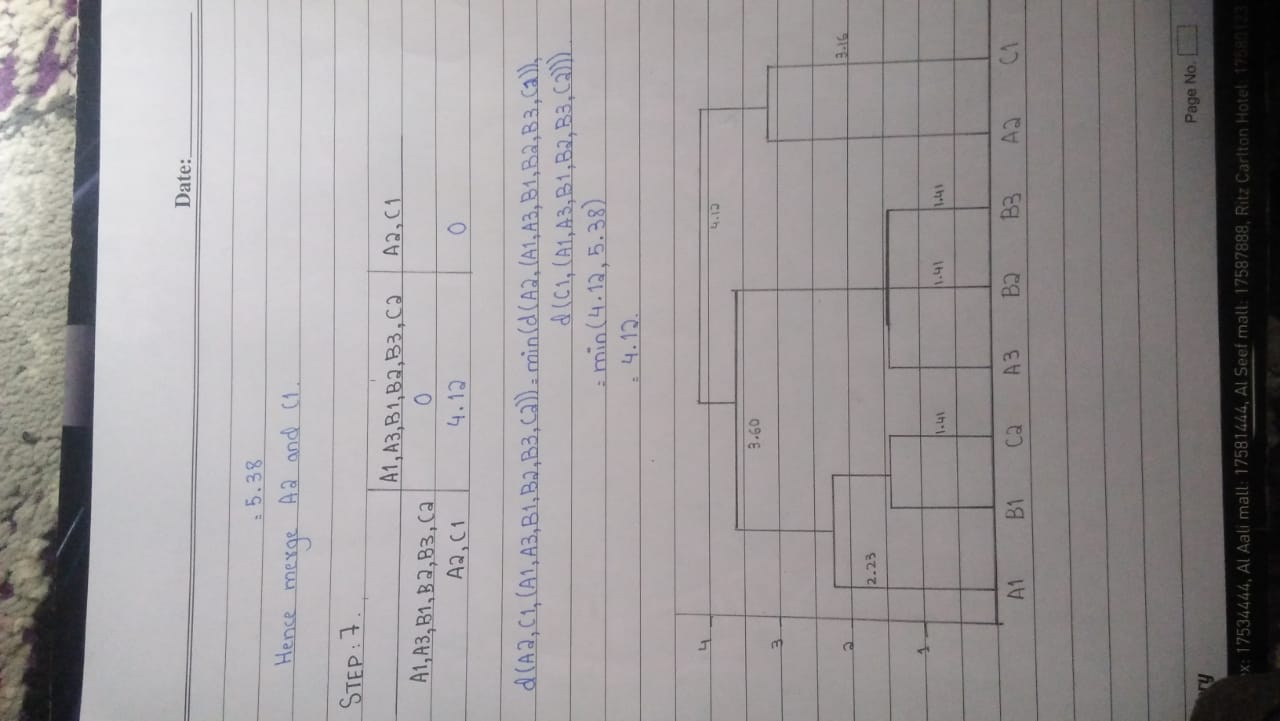 Date:
= 5.38
Hence merge A2 and C1.
STEP: 7.
A1,A3,B1,B2,B3,C2 A2,C1
A1,A3,B1,B2,B3,C2 0
A2,C1 4.12 0
d(A2,C1,(A1,A3,B1,B2,B3,C2)) = min(d(A2,(A1,A3,B1,B2,B3,C2)),
d(C1,(A1,A3,B1,B2,B3,C2)))
= min(4.12, 5.38)
= 4.12.
4
4.12
3.60
3
3.16
2
2.23
1
1.41
1.41
1.41
A1 B1 C2 A3 B2 B3 A2 C1
Page No.
x: 17534444, Al Aali mall: 17581444, Al Seef mall: 17587888, Ritz Carlton Hotel 17580123